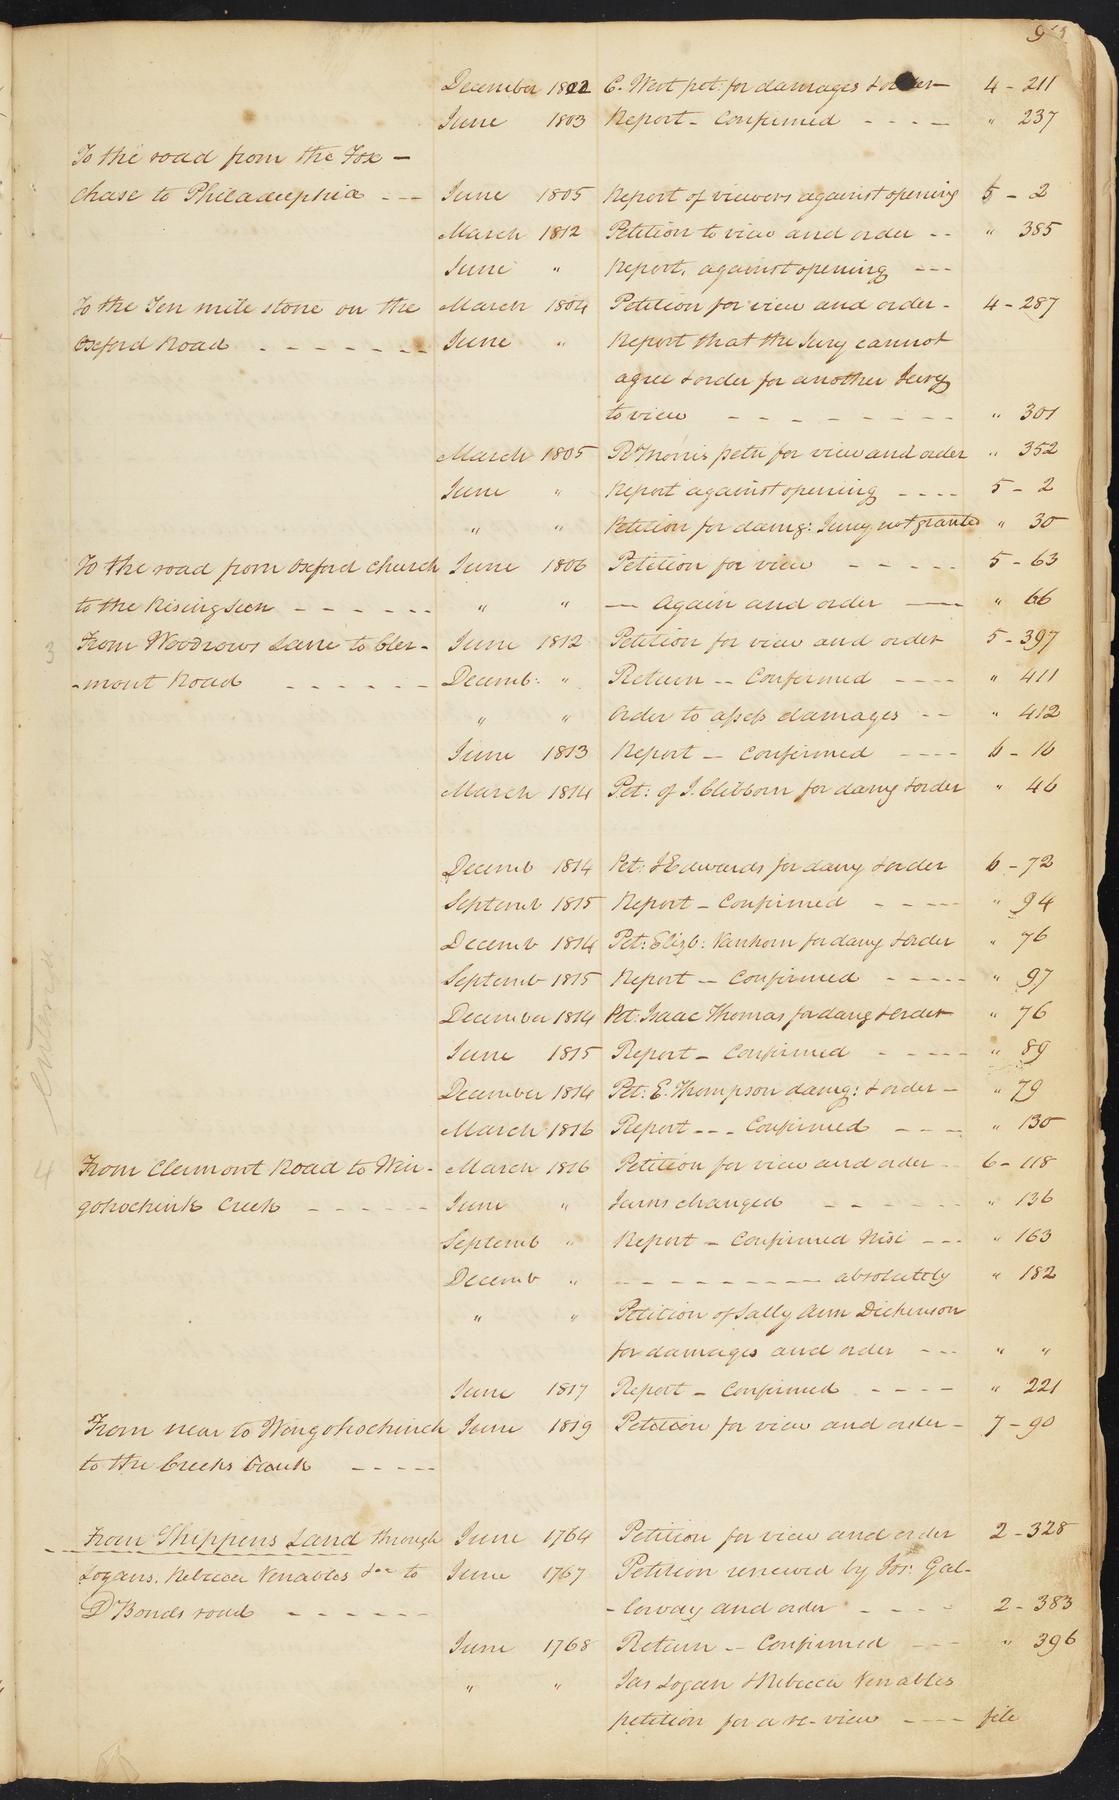 December 1802 C. West pet: for damages & order 4 - 211
June 1803 Report - Confirmed - - - - " 237
To the road from the Fox -
chase to Philadelphia - - - June 1805 Report of viewers against opening 5 - 2
March 1812 Petition to view and order - - " 385
June " Report, against opening - - -
To the Ten mile stone on the March 1804 Petition for view and order - 4 - 287
Oxford Road - - - - - - - June " Report that the Jury cannot
agree & order for another Jury
to view - - - - - - - - " 301
March 1805 R Morris petn for view and order " 352
June " Report against opening - - - - 5 - 2
" " Petition for damg: Jury not granted " 30
To the road from Oxford Church June 1806 Petition for view - - - - - 5 - 63
to the Rising Sun - - - - - - " " — Again and order — " 66
3 From Woodrows Lane to Cler- June 1812 Petition for view and order 5 - 397
-mont Road - - - - - - Decemb: " Return -- Confirmed - - - - " 411
" " Order to assess damages - - " 412
June 1813 Report - Confirmed - - - - 6 - 16
March 1814 Pet: of J. Clibborn for damg & order " 46
Decemb 1814 Pet: J Edwards for damg & order 6 - 72
Septemb 1815 Report - Confirmed - - - - - " 94
Decemb 1814 Pet: Elizb: Vanhorn for damg & order " 76
Septemb 1815 Report -- Confirmed - - - - - " 97
December 1814 Pet: Isaac Thomas for damg & order " 76
June 1815 Report - Confirmed - - - - - " 89
December 1814 Pet: E. Thompson damg: & order - " 79
March 1816 Report - - - Confirmed - - - - " 130
4 From Clermont Road to Win- March 1816 Petition for view and order - 6 - 118
gohockink Creek - - - - - - June " Jurors changed - - - - - - " 136
Septemb " Report - Confirmed Nisi - - - " 163
Decemb " - - - - - - - - - - absolutely " 182
" " Petition of Sally Ann Dickenson
for damages and order - - - " "
June 1817 Report - Confirmed - - - - " 221
From near to Wingohockinch June 1819 Petition for view and order - 7 - 90
to the Creeks Bank - - - - -
From Shippens Land through June 1764 Petition for view and order 2 - 328
Logans, Rebecca Venables &c to June 1767 Petition renewed by Jos: Gal-
D Bonds road - - - - - - -loway and order - - - - 2 - 383
June 1768 Return -- Confirmed - - - " 396
" " Jas Logan & Rebecca Venables
petition for a re-view - - - - file